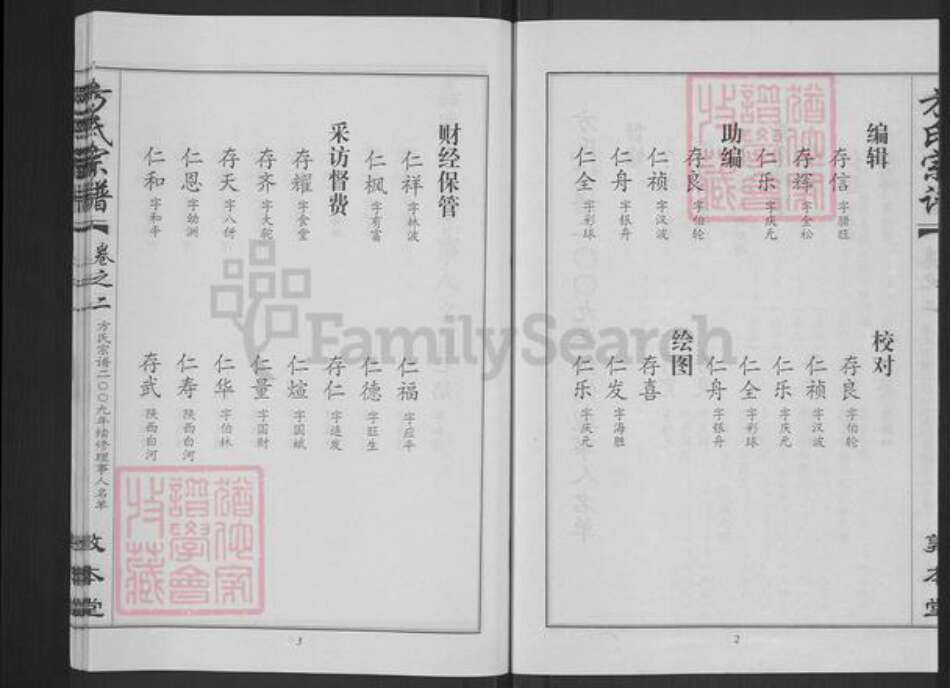 编辑
存信 字腊旺
存辉 字金松
仁乐 字庆元
助编
存良 字伯轮
仁祯 字汉波
仁舟 字银舟
仁全 字彩球
校对
存良 字伯轮
仁祯 字汉波
仁乐 字庆元
仁全 字彩球
仁舟 字银舟
绘图
存喜
仁发 字海胜
仁乐 字庆元
2
财经保管
仁祥 字林波
仁枫 字有富
采访督费
存耀 字金堂
存齐 字大驼
存天 字八併
仁恩 字幼洲
仁和 字和平
仁福 字应平
仁德 字旺生
存仁 字进发
仁煊 字国斌
仁量 字国财
仁华 字伯林
仁寿 陕西白河
存武 陕西白河
方氏宗谱
卷之二
方氏宗谱二〇〇九年续修理事人名单
敦本堂
3
FamilySearch